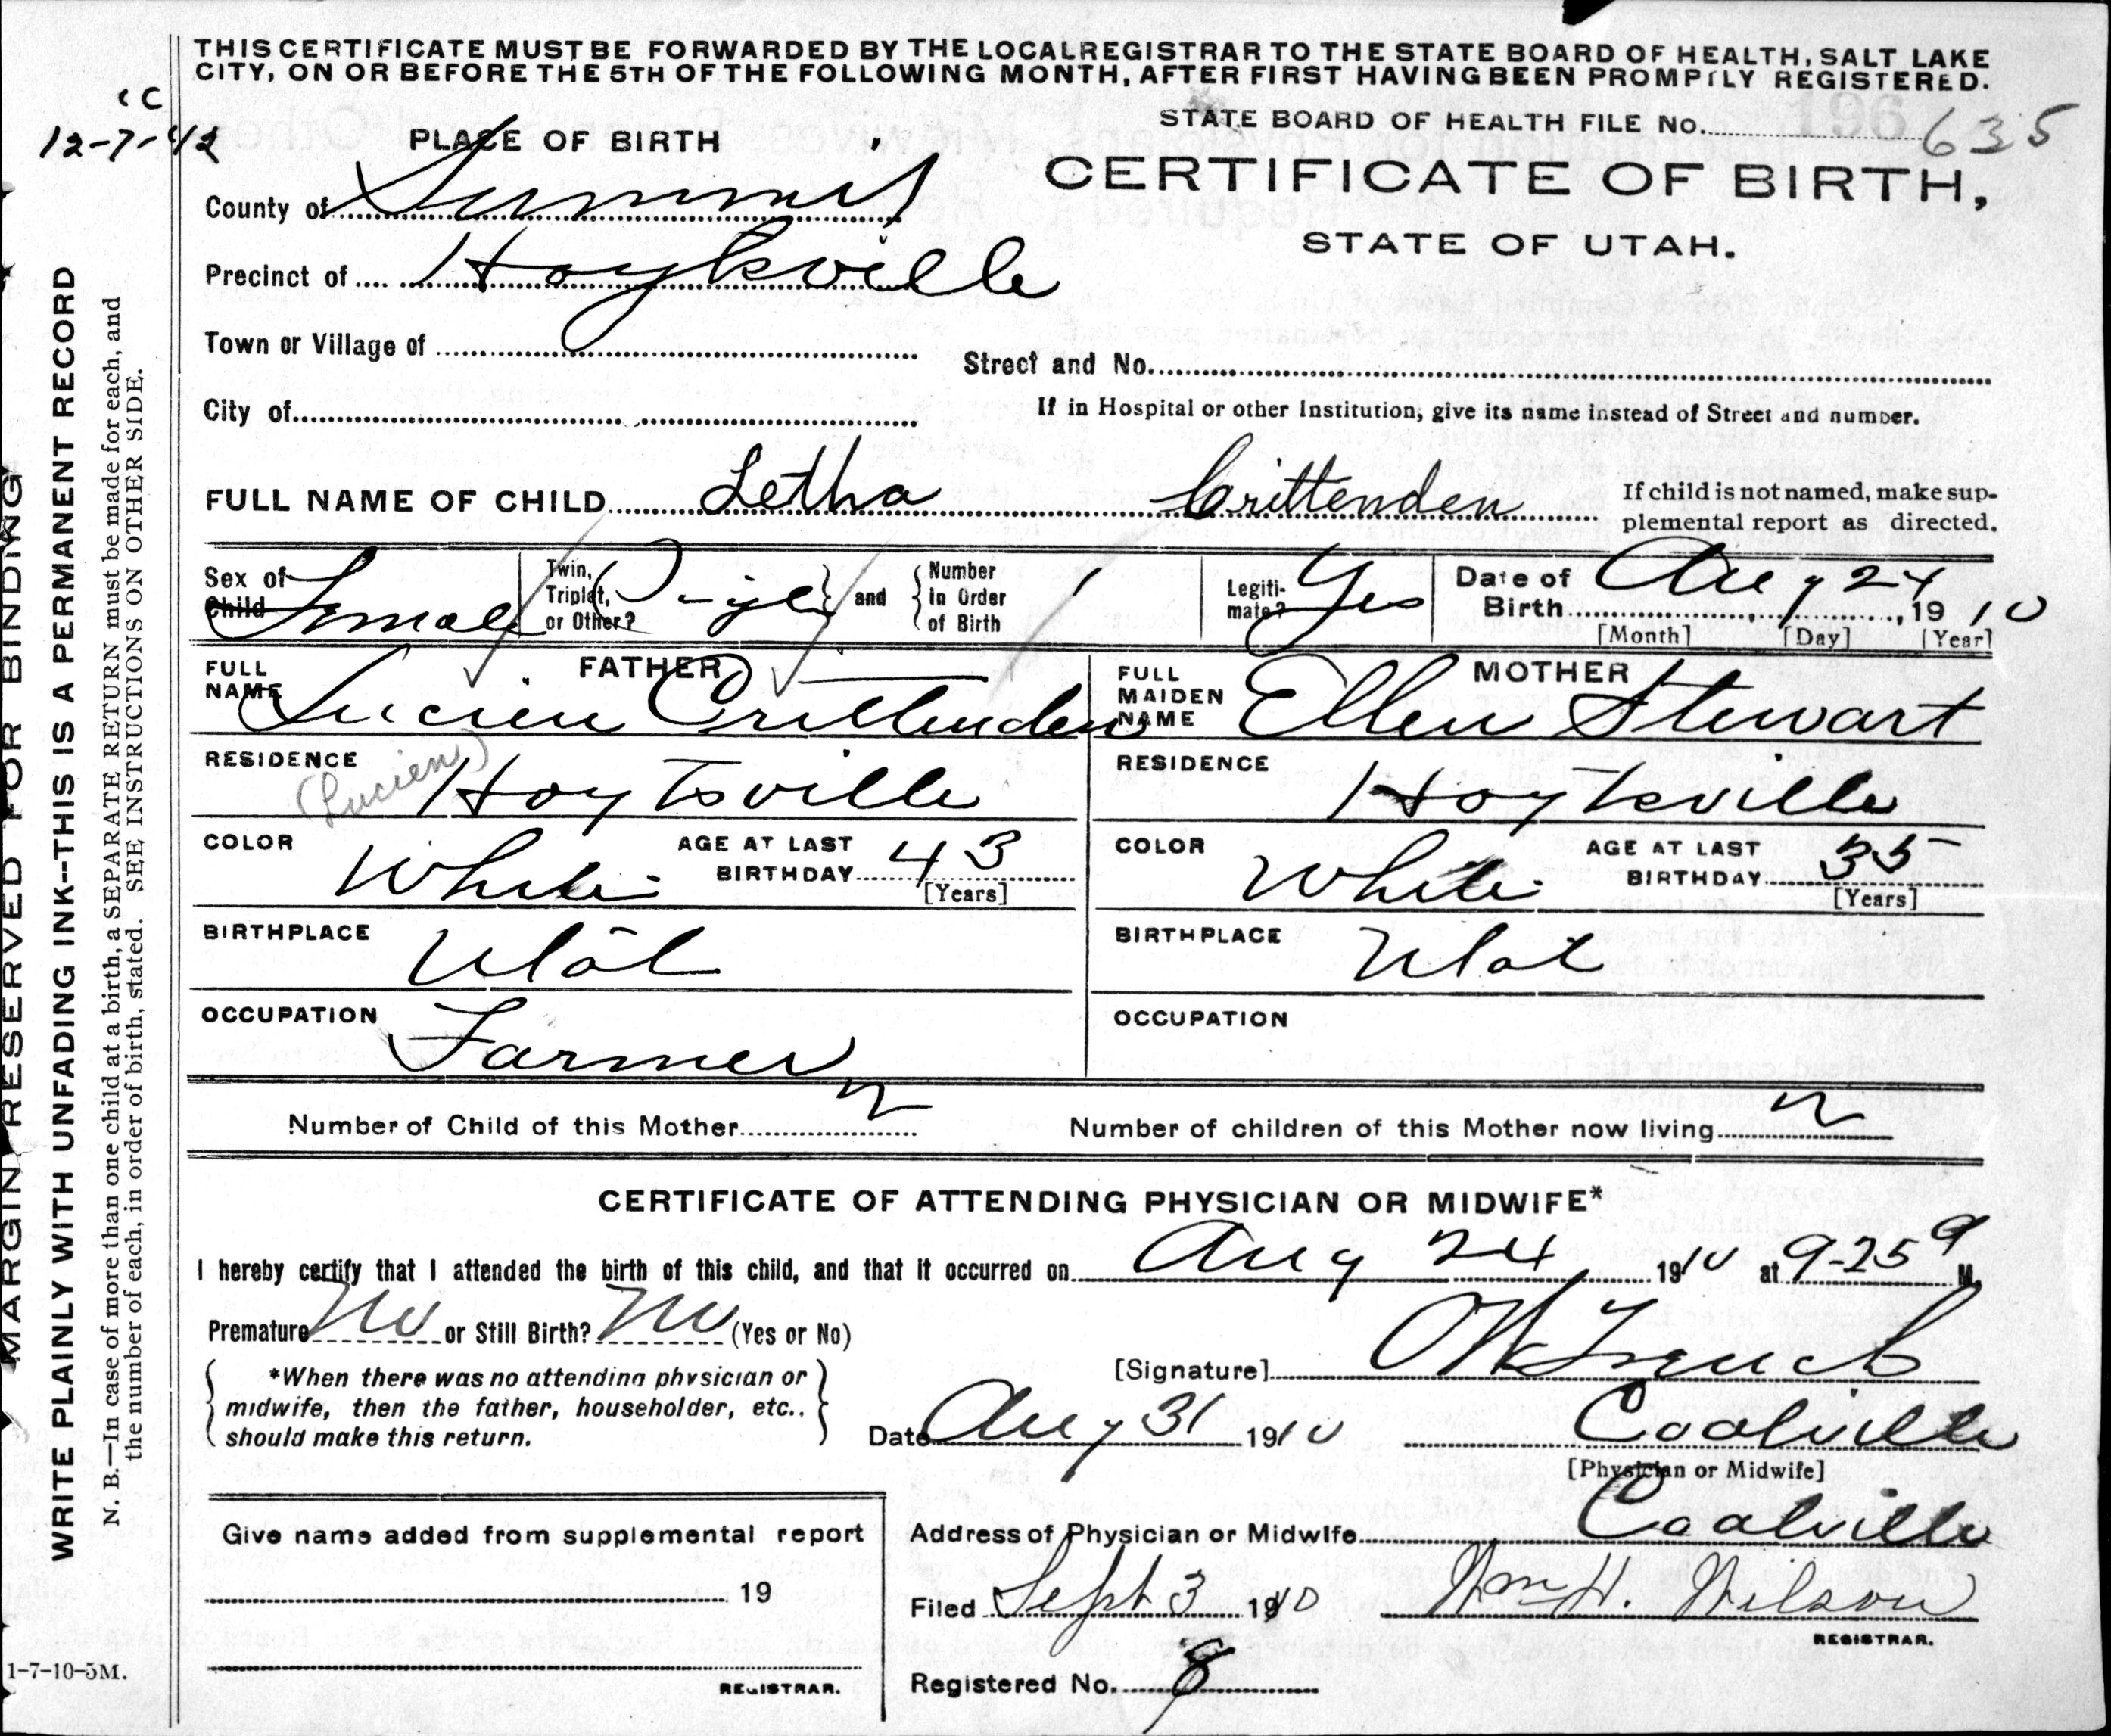 THIS CERTIFICATE MUST BE FORWARDED BY THE LOCAL REGISTRAR TO THE STATE BOARD OF HEALTH, SALT LAKE
CITY, ON OR BEFORE THE 5TH OF THE FOLLOWING MONTH, AFTER FIRST HAVING BEEN PROMPTLY REGISTERED.
cc
12-7-42
STATE BOARD OF HEALTH FILE No. 196 635
PLACE OF BIRTH
CERTIFICATE OF BIRTH,
STATE OF UTAH.
County of Summit
Precinct of Hoytsville
Town or Village of
Street and No.
City of
If in Hospital or other Institution, give its name instead of Street and number.
FULL NAME OF CHILD Letha Crittenden
If child is not named, make sup-
plemental report as directed.
Sex of Child Female
Twin, Triplet, or Other? and Number In Order of Birth 1
Legiti-mate? Yes
Date of Birth Aug 24, 1910
[Month] [Day] [Year]
FATHER
FULL NAME Lucien Crittenden
(Lucien)
RESIDENCE Hoytsville
COLOR White AGE AT LAST BIRTHDAY 43
[Years]
BIRTHPLACE Utah
OCCUPATION Farmer
MOTHER
FULL MAIDEN NAME Ellen Stewart
RESIDENCE Hoytsville
COLOR White AGE AT LAST BIRTHDAY 35
[Years]
BIRTHPLACE Utah
OCCUPATION
Number of Child of this Mother
Number of children of this Mother now living
CERTIFICATE OF ATTENDING PHYSICIAN OR MIDWIFE*
I hereby certify that I attended the birth of this child, and that it occurred on Aug 24 1910 at 9-25 a M.
Premature No or Still Birth? No (Yes or No)
*When there was no attending physician or
midwife, then the father, householder, etc.,
should make this return.
[Signature]
Date Aug 31 1910 Coalville
[Physician or Midwife]
Address of Physician or Midwife Coalville
Filed Sept 3 1910 Wm H. Wilson
REGISTRAR.
Registered No. 8
Give name added from supplemental report
19
REGISTRAR.
MARGIN RESERVED FOR BINDING
WRITE PLAINLY WITH UNFADING INK--THIS IS A PERMANENT RECORD
N. B.—In case of more than one child at a birth, a SEPARATE RETURN must be made for each, and
the number of each, in order of birth, stated. SEE INSTRUCTIONS ON OTHER SIDE.
1-7-10-5M.